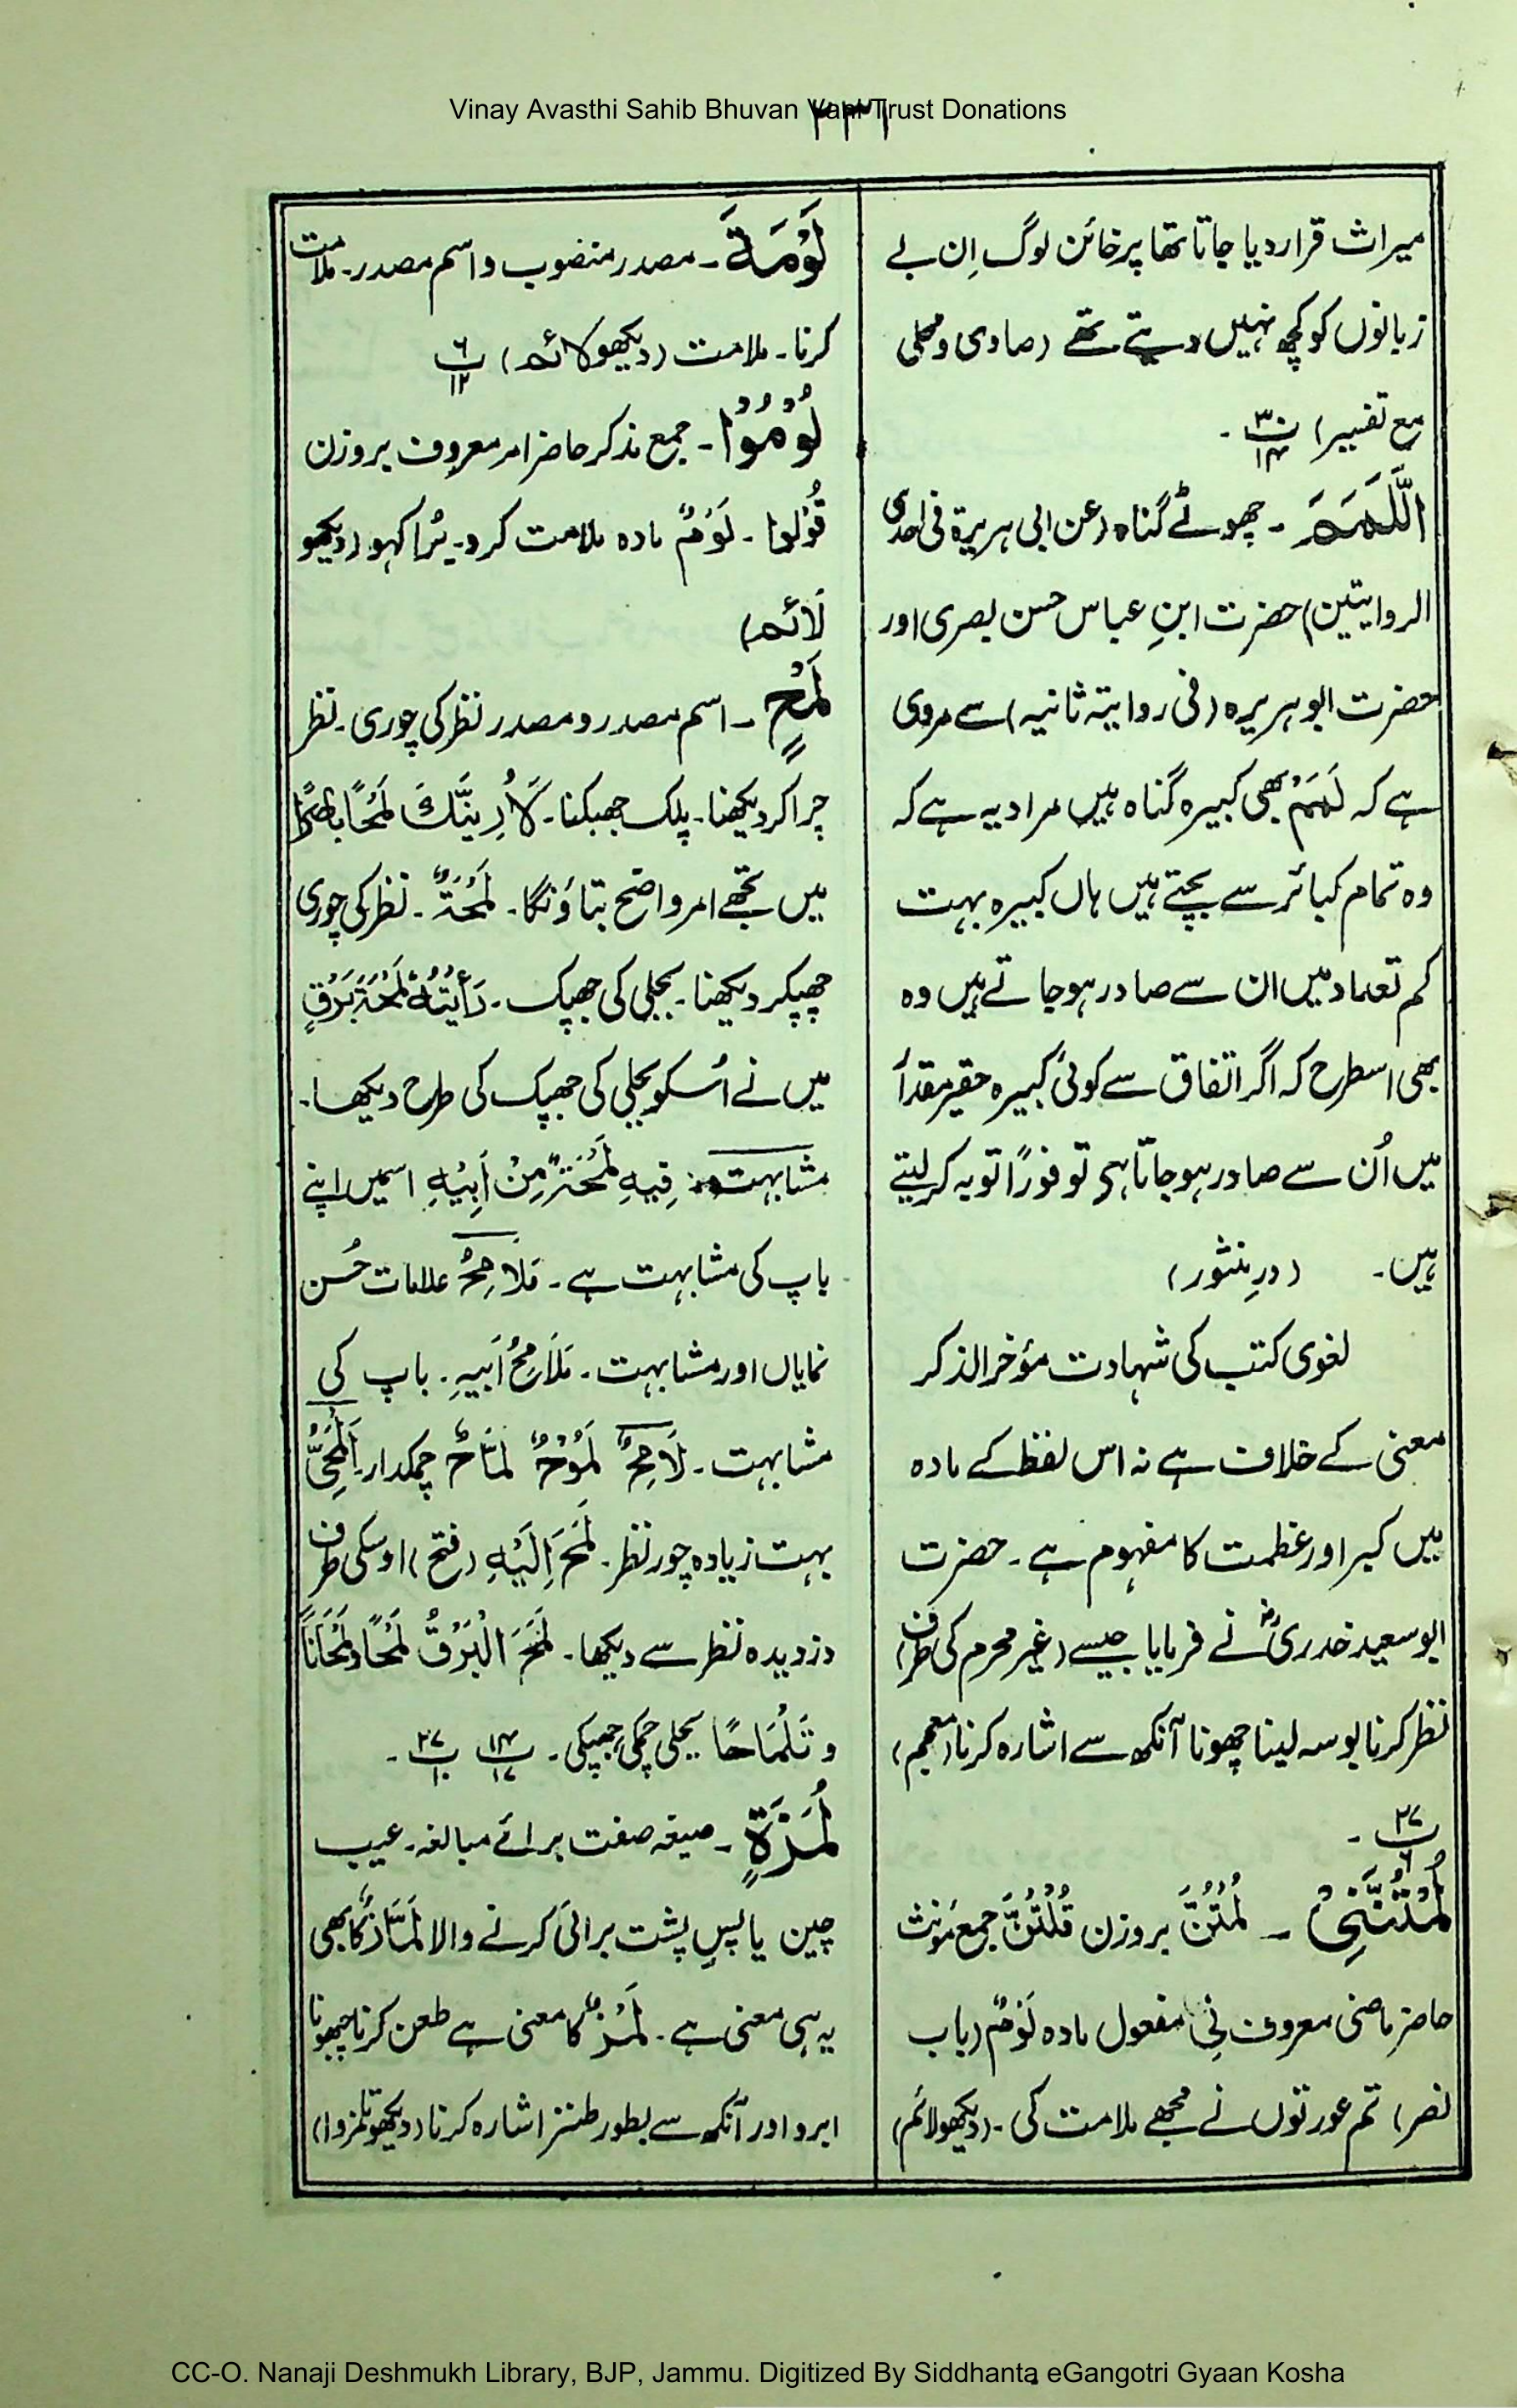 Vinay Avasthi Sahib Bhuvan Vani Trust Donations
۲۳۶
میراث قرار دیا جاتا تھا پر خائن لوگ اِن بے
زبانوں کو کچھ نہیں دیتے تھے (صاوی و محلی
مع تفسیر) پ۳۰ ۱۴ ۔
اَللَّمَمَ ۔ چھوٹے گناہ (عن ابی ہریرۃ فی احدی
الروایتین) حضرت ابنِ عباس حسن بصری اور
حضرت ابو ہریرہ (فی روایتہ ثانیہ) سے مروی
ہے کہ لَمَمْ بھی کبیرہ گناہ ہیں مراد یہ ہے کہ
وہ تمام کبائر سے بچتے ہیں ہاں کبیرہ بہت
کم تعداد میں ان سے صادر ہو جاتے ہیں وہ
بھی اسطرح کہ اگر اتفاق سے کوئی کبیرہ حقیر مقدار
میں اُن سے صادر ہو جاتا ہی تو فورًا توبہ کر لیتے
ہیں۔ (درِ منثور)
لغوی کتب کی شہادت مؤخر الذکر
معنی کے خلاف ہے نہ اس لفظ کے مادہ
میں کبر اور عظمت کا مفہوم ہے ۔ حضرت
ابو سعید خدریؓ نے فرمایا جیسے (غیر محرم کی طرف)
نظر کرنا بوسہ لینا چھونا آنکھ سے اشارہ کرنا (معجم)
پ۲۷ ۶ ۔
لُمْتُنَّنِیْ ۔ لُمْتُنَّ بروزن قُلْتُنَّ جمع مونث
حاضر ماضی معروف نِی مفعول مادہ لَوْمٌ (باب
نصر) تم عورتوں نے مجھے ملامت کی ۔ (دیکھو لائم)
لَوْمَةَ ۔ مصدر منصوب و اسم مصدر ۔ ملامت
کرنا ۔ ملامت (دیکھو لائم) پ۶ ۱۲
لُوْمُوْا ۔ جمع مذکر حاضر امر معروف بروزن
قُوْلُوا ۔ لَوْمٌ مادہ ملامت کرو ۔ بُرا کہو (دیکھو
لَائم)
لَمْحٍ ۔ اسم مصدر و مصدر نظر کی چوری ۔ نظر
چرا کر دیکھنا ۔ پلک جھپکنا ۔ لَأُرِیَنَّكَ لَمْحًا بَاصِرًا
میں تجھے امر واضح بتاؤنگا ۔ لَمْحَةٌ ۔ نظر کی چوری
چھپکر دیکھنا ۔ بجلی کی جھپک ۔ رَأَیْتُهُ لَمْحَةَ بَرْقٍ
میں نے اُسکو بجلی کی جھپک کی طرح دیکھا ۔
مشابہت فِیهِ لَمْحَةٌ مِنْ اَبِیْهِ اسمیں اپنے
باپ کی مشابہت ہے ۔ مَلَامِحُ علامات حُسن
نمایاں اور مشابہت ۔ مَلَامِحُ اَبِیهِ ۔ باپ کی
مشابہت ۔ لَامِحٌ لَمُوْحٌ لَمَّاحٌ چمکدار ۔ اَلْمَحِیُّ
بہت زیادہ چور نظر ۔ لَمَحَ اِلَیْهِ (فتح) اوسکی طرف
دزدیدہ نظر سے دیکھا ۔ لَمَحَ الْبَرْقُ لَمْحًا و لَمَحَانًا
و تَلْمَاحًا بجلی چمکی جھپکی ۔ پ۱۴ ۱۷ پ۲۷ ۱۰ ۔
لُمَزَةٍ ۔ صیغہ صفت برائے مبالغہ ۔ عیب
چین یا پسِ پشت برائی کرنے والا لَمَّازٌ کا بھی
یہ ہی معنی ہے ۔ لَمْزٌ کا معنی ہے طعن کرنا چھونا
ابرو اور آنکھ سے بطور طنز اشارہ کرنا (دیکھو تلمزوا)
CC-O. Nanaji Deshmukh Library, BJP, Jammu. Digitized By Siddhanta eGangotri Gyaan Kosha